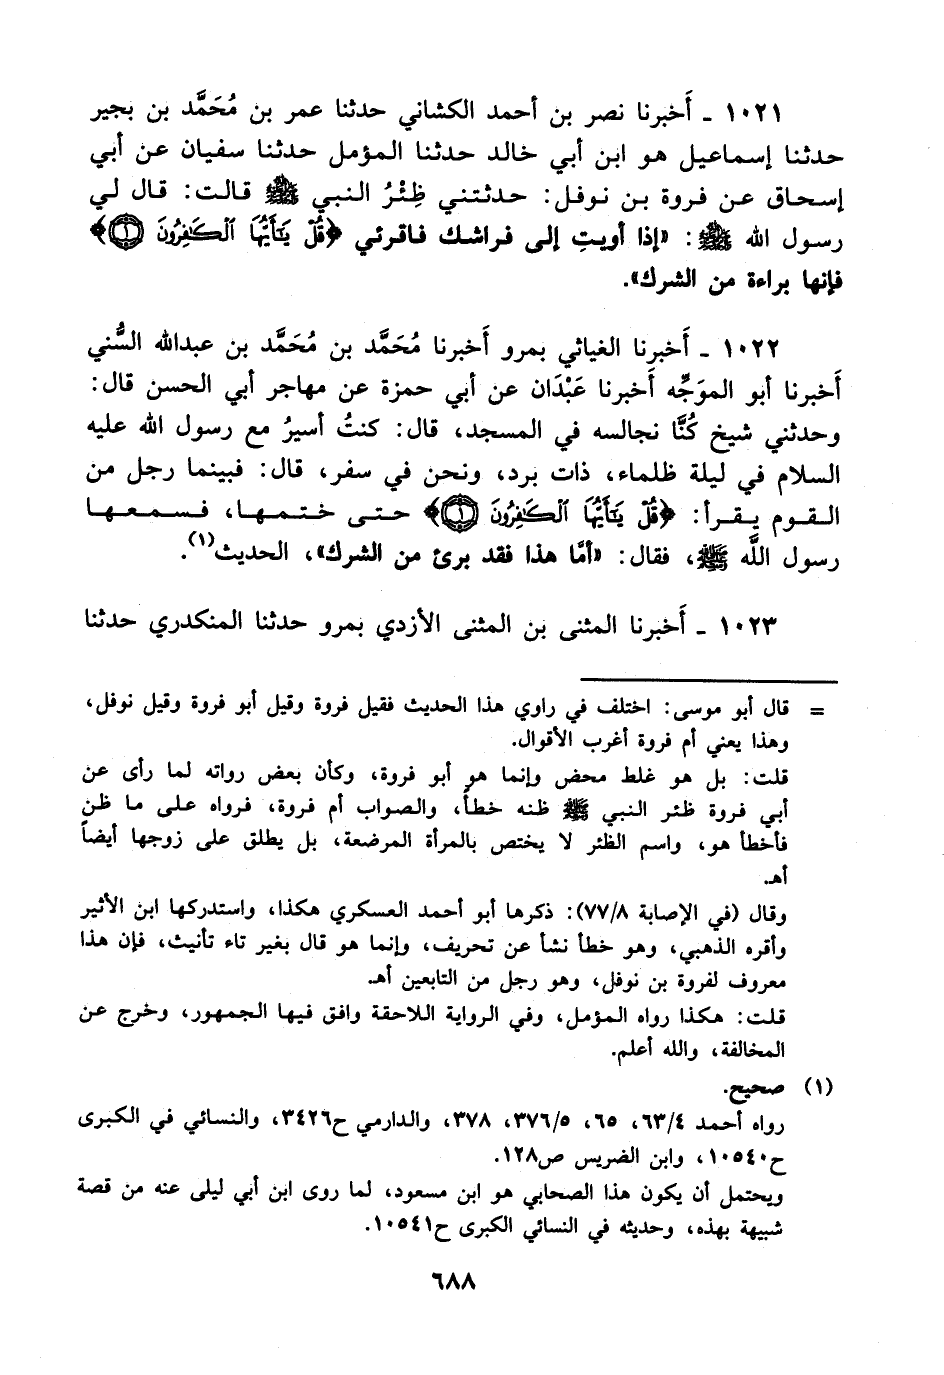 ١٠٢١ ـ أَخبرنا نصر بن أحمد الكشاني حدثنا عمر بن مُحَمَّد بن بجير
حدثنا إسماعيل هو ابن أبي خالد حدثنا المؤمل حدثنا سفيان عن أبي
إسحاق عن فروة بن نوفل: حدثتني ظِئْرُ النبي ﷺ قالت: قال لي
رسول الله ﷺ: «إذا أويتِ إلى فراشك فاقرئي ﴿قُلْ يَٰٓأَيُّهَا ٱلْكَٰفِرُونَ ۝١﴾
فإنها براءة من الشرك».
١٠٢٢ ـ أَخبرنا الغياثي بمرو أَخبرنا مُحَمَّد بن مُحَمَّد بن عبدالله السُّني
أَخبرنا أبو الموَجِّه أَخبرنا عَبْدَان عن أبي حمزة عن مهاجر أبي الحسن قال:
وحدثني شيخ كُنَّا نجالسه في المسجد، قال: كنتُ أسيرُ مع رسول الله عليه
السلام في ليلة ظلماء، ذات برد، ونحن في سفر، قال: فبينما رجل من
القوم يقرأ: ﴿قُلْ يَٰٓأَيُّهَا ٱلْكَٰفِرُونَ ۝١﴾ حتى ختمها، فسمعها
رسول اللَّه ﷺ، فقال: «أمَّا هذا فقد برئ من الشرك»، الحديث(١).
١٠٢٣ ـ أَخبرنا المثنى بن المثنى الأزدي بمرو حدثنا المنكدري حدثنا
= قال أبو موسى: اختلف في راوي هذا الحديث فقيل فروة وقيل أبو فروة وقيل نوفل،
وهذا يعني أم فروة أغرب الأقوال.
قلت: بل هو غلط محض وإنما هو أبو فروة، وكأن بعض رواته لما رأى عن
أبي فروة ظئر النبي ﷺ ظنه خطأ، والصواب أم فروة، فرواه على ما ظن
فأخطأ هو، واسم الظئر لا يختص بالمرأة المرضعة، بل يطلق على زوجها أيضاً
أهـ.
وقال (في الإصابة ٧٧/٨): ذكرها أبو أحمد العسكري هكذا، واستدركها ابن الأثير
وأقره الذهبي، وهو خطأ نشأ عن تحريف، وإنما هو قال بغير تاء تأنيث، فإن هذا
معروف لفروة بن نوفل، وهو رجل من التابعين أهـ.
قلت: هكذا رواه المؤمل، وفي الرواية اللاحقة وافق فيها الجمهور، وخرج عن
المخالفة، والله أعلم.
(١) صحيح.
رواه أحمد ٦٣/٤، ٦٥، ٣٧٦/٥، ٣٧٨، والدارمي ح٣٤٢٦، والنسائي في الكبرى
ح١٠٥٤٠، وابن الضريس ص١٢٨.
ويحتمل أن يكون هذا الصحابي هو ابن مسعود، لما روى ابن أبي ليلى عنه من قصة
شبيهة بهذه، وحديثه في النسائي الكبرى ح١٠٥٤١.
٦٨٨